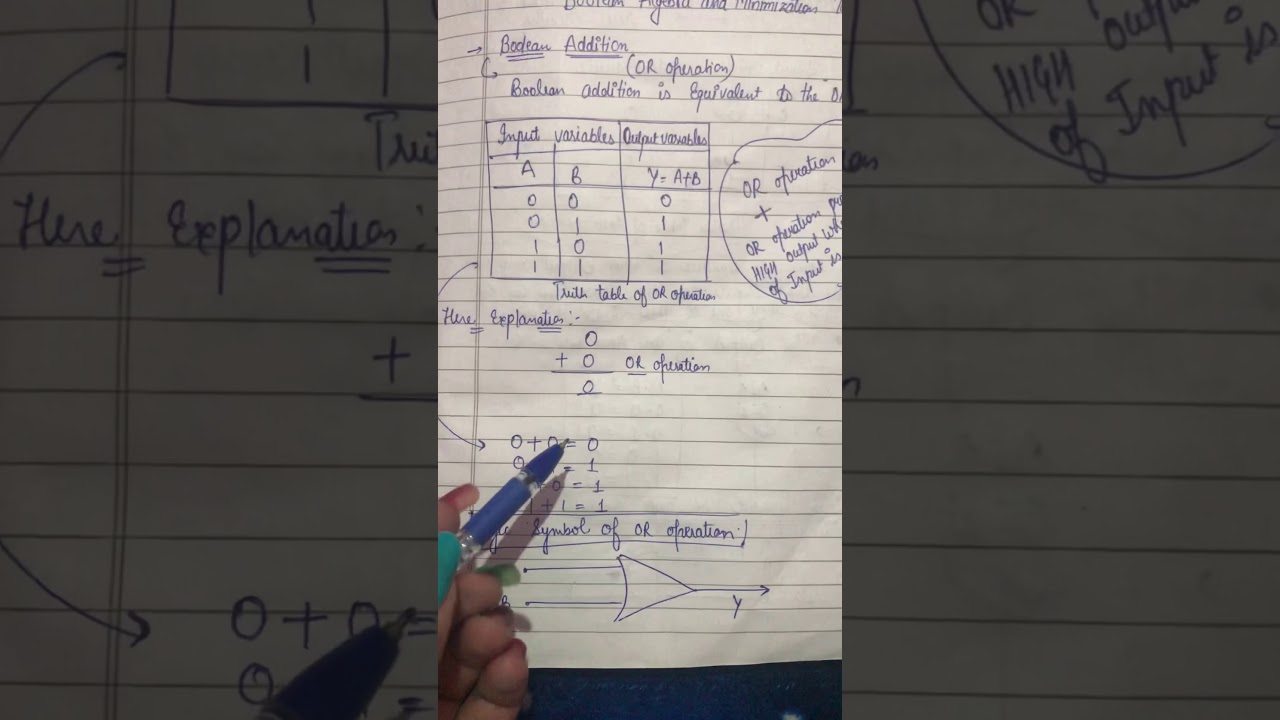 Boolean Algebra and Minimization
→ Boolean Addition
(OR operation)
Boolean addition is Equivalent to the
Input variables Output variables
A B Y = A+B
0 0 0
0 1 1
1 0 1
1 1 1
Truth table of OR operation
OR operation
+
OR operation
HIGH output
of Input is
Here Explanation:-
0
+ 0 OR operation
0
0 + 0 = 0
0 = 1
+ 0 = 1
+ 1 = 1
Symbol of OR operation:
B
Y
1
1
Here Explanation:
+
0 + 0 =
0 =
OR output
HIGH
of Input is